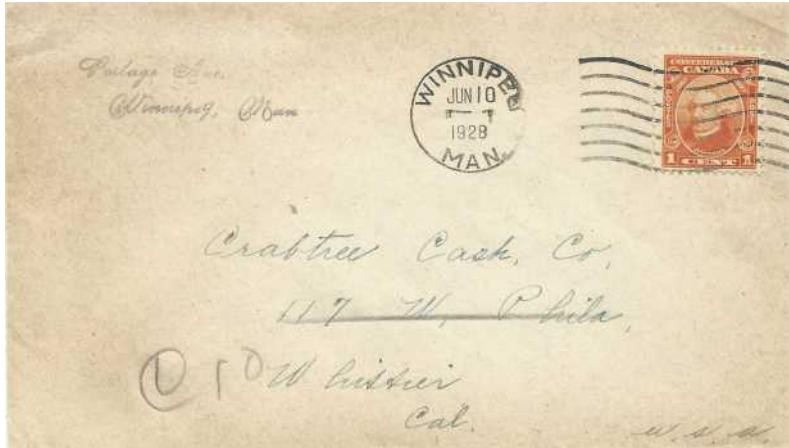 Portage Ave.
Winnipeg, Man
WINNIPEG
JUN 10
1928
MAN.
CONFEDERATION
CANADA
1 CENT 1
Crabtree Cash, Co,
117 W, Phila,
Whittier
Cal.
U S A